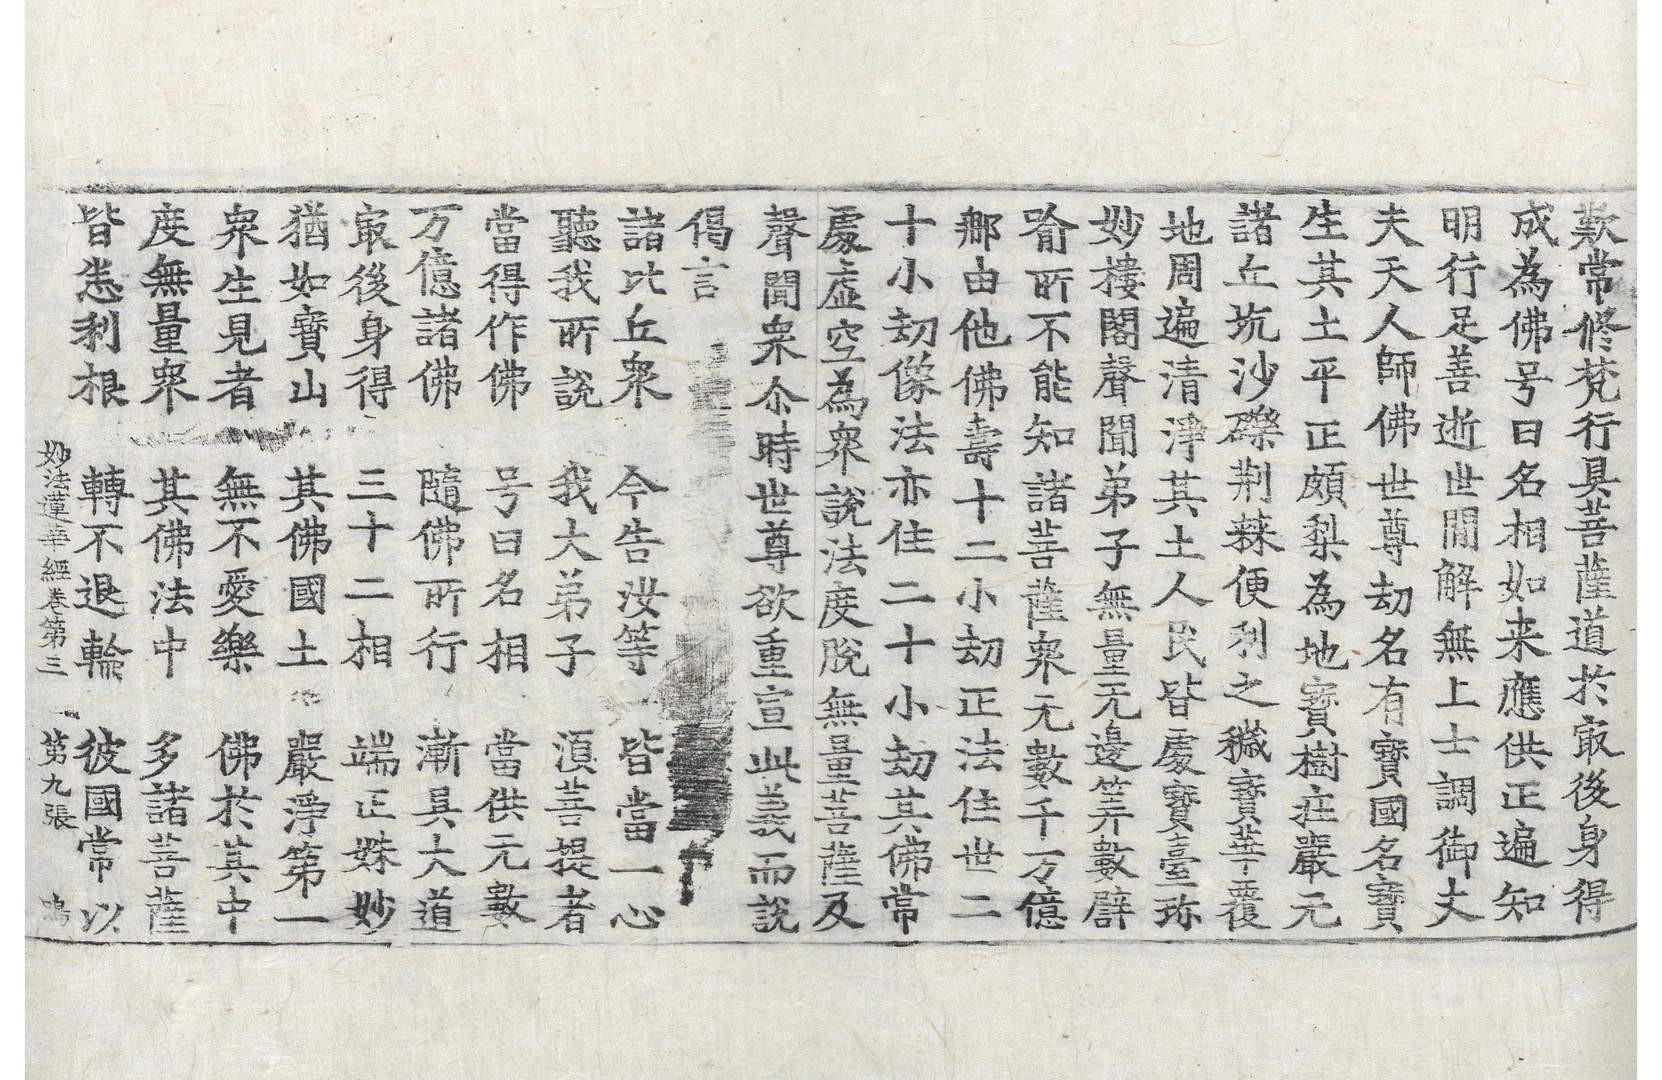 歎常修梵行具菩薩道於㝡後身得
成為佛号曰名相如来應供正遍知
明行足善逝世間解無上士調御丈
夫天人師佛世尊劫名有寶國名寶
生其土平正頗梨為地寶樹庄嚴无
諸丘坑沙礫荆棘便利之穢寶華覆
地周遍清淨其土人民皆處寶臺珎
妙樓閣聲聞弟子無量无邊筭數譬
喻所不能知諸菩薩衆无數千万億
那由他佛壽十二小劫正法住世二
十小劫像法亦住二十小劫其佛常
處虛空為衆說法度脫無量菩薩及
聲聞衆尒時世尊欲重宣此義而說
偈言
諸比丘衆 今告汝等 皆當一心
聽我所說 我大弟子 湏菩提者
當得作佛 号曰名相 當供无數
万億諸佛 隨佛所行 漸具大道
㝡後身得 三十二相 端正姝妙
猶如寶山 其佛國土 嚴淨第一
衆生見者 無不愛樂 佛於其中
度無量衆 其佛法中 多諸菩薩
皆悉利根 轉不退輪 彼國常以
妙法蓮華經卷第三 第九張 鳴